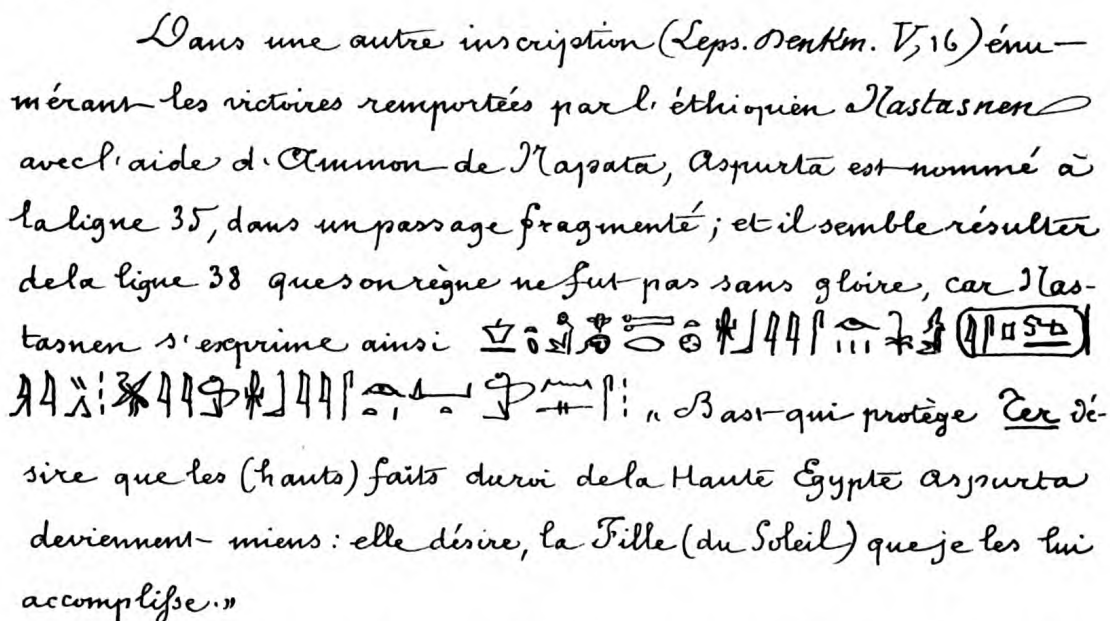 Dans une autre inscription (Leps. Denkm. V, 16) énu-
mérant les victoires remportées par l'éthiopien Nastasnen
avec l'aide d'Ammon de Napata, Aspurta est nommé à
la ligne 35, dans un passage fragmenté; et il semble résulter
de la ligne 38 que son règne ne fut pas sans gloire, car Nas-
tasnen s'exprime ainsi
„ Bast qui protège Ter dé-
sire que les (hauts) faits du roi de la Haute Égypte Aspurta
deviennent miens : elle désire, la Fille (du Soleil) que je les lui
accomplisse.„